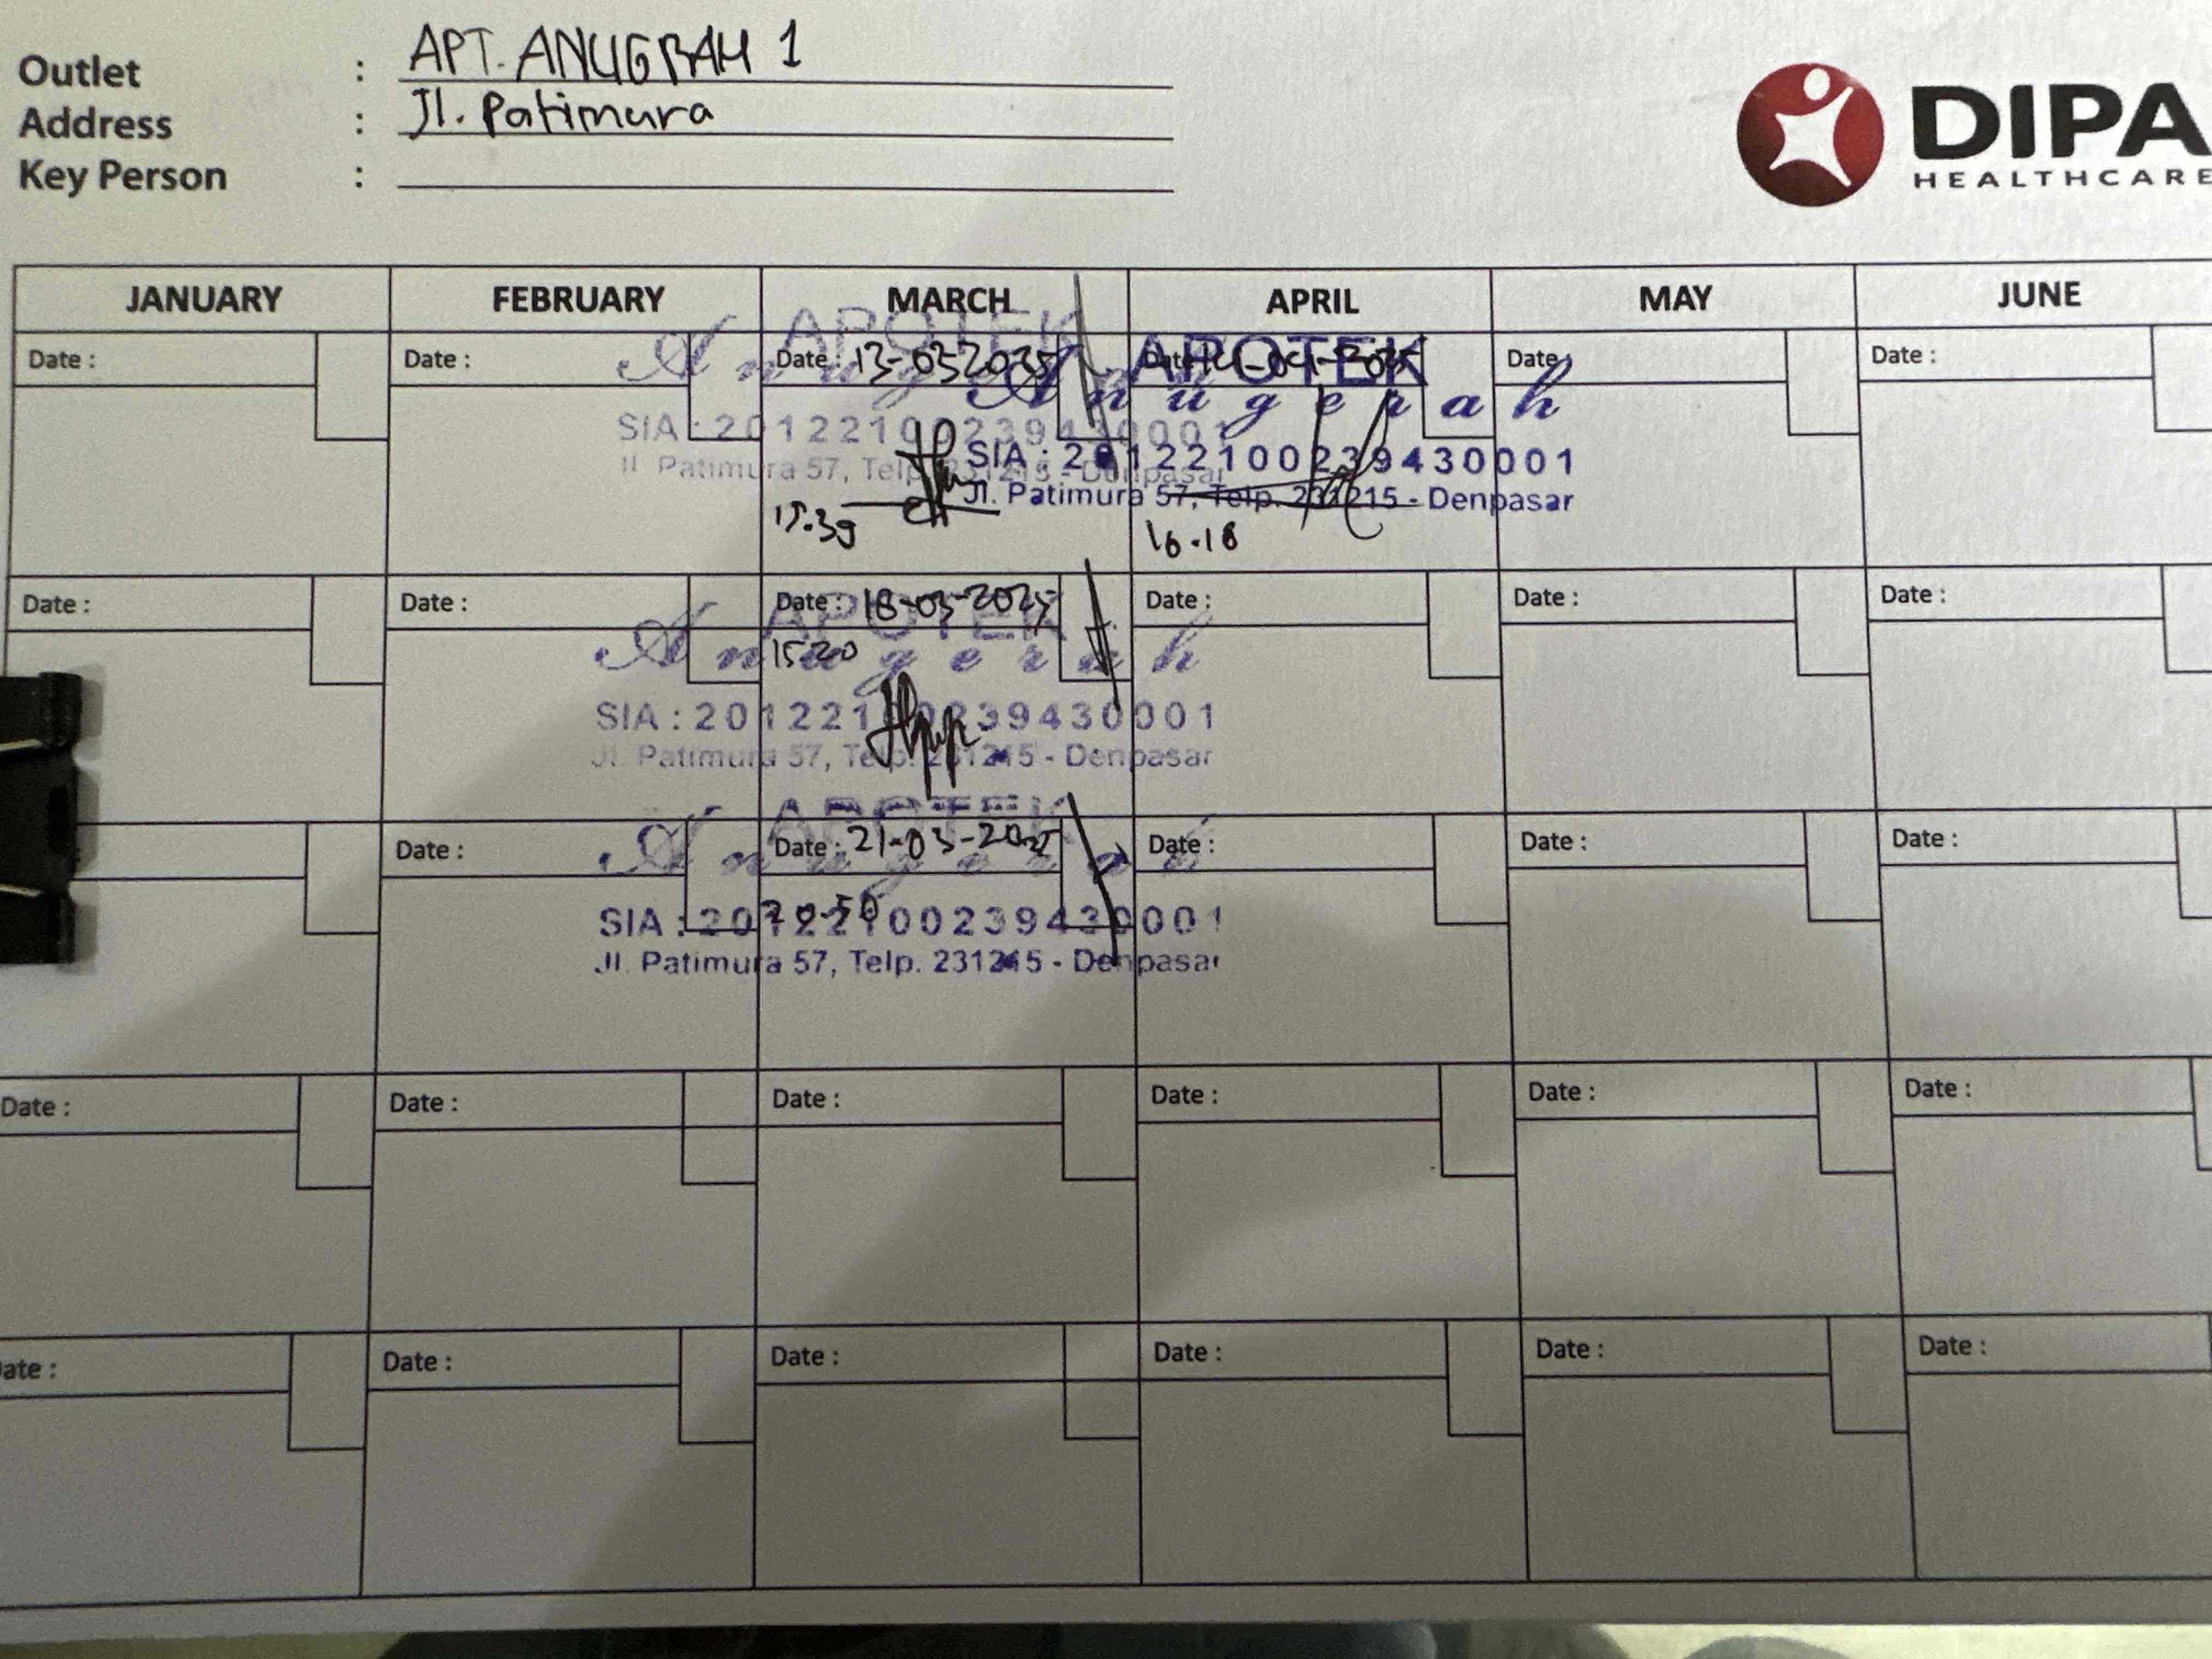 Outlet : APT. ANUGRAH 1
Address : Jl. Patimura
Key Person :
DIPA
HEALTHCARE
JANUARY FEBRUARY MARCH APRIL MAY JUNE
APOTEK APOTEK
Date : Date : Date : 13-03-2025 Date : 14-04-2025 Date : Date :
Anugerah Anugerah
SIA : 20122100239430001 SIA : 20122100239430001
Jl. Patimura 57, Telp. 231215 - Denpasar Jl. Patimura 57, Telp. 231215 - Denpasar
15.39 16.18
Date : Date : Date : 18-03-2025 Date : Date : Date :
APOTEK
15.20
Anugerah
SIA : 20122100239430001
Jl. Patimura 57, Telp. 231215 - Denpasar
APOTEK
Date : Date : 21-03-2025 Date : Date : Date :
Anugerah
20.50
SIA : 20122100239430001
Jl. Patimura 57, Telp. 231215 - Denpasar
Date : Date : Date : Date : Date : Date :
ate : Date : Date : Date : Date : Date :